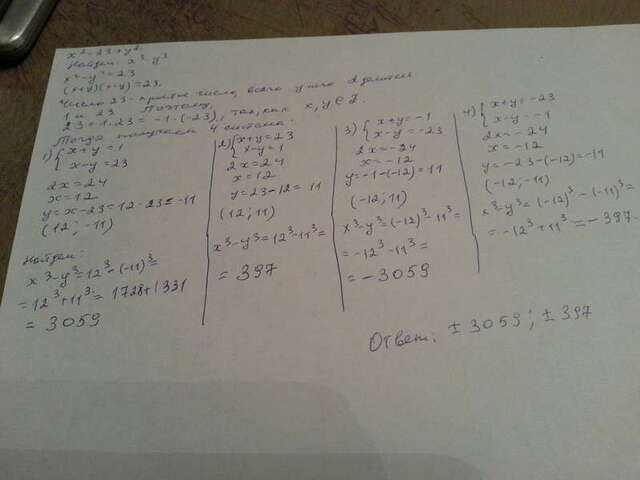 x² = 23 + y²
Найти: x³ - y³
x² - y² = 23
(x+y)(x-y) = 23.
Число 23 - простое число, всего у него 2 делителя
1 и 23. Поэтому,
23 = 1·23 = -1·(-23), так как x, y ∈ Z.
Тогда получаем 4 системы:
1) { x+y = 1
x-y = 23
2x = 24
x = 12
y = x-23 = 12-23 = -11
(12; -11)
Найдем:
x³-y³ = 12³-(-11)³ =
= 12³+11³ = 1728+1331
= 3059
2) { x+y = 23
x-y = 1
2x = 24
x = 12
y = 23-12 = 11
(12; 11)
x³-y³ = 12³-11³ =
= 397
3) { x+y = -1
x-y = -23
2x = -24
x = -12
y = -1-(-12) = 11
(-12; 11)
x³-y³ = (-12)³-11³ =
= -12³-11³ =
= -3059
4) { x+y = -23
x-y = -1
2x = -24
x = -12
y = -23-(-12) = -11
(-12; -11)
x³-y³ = (-12)³-(-11)³ =
= -12³+11³ = -397.
Ответ: ±3059; ±397